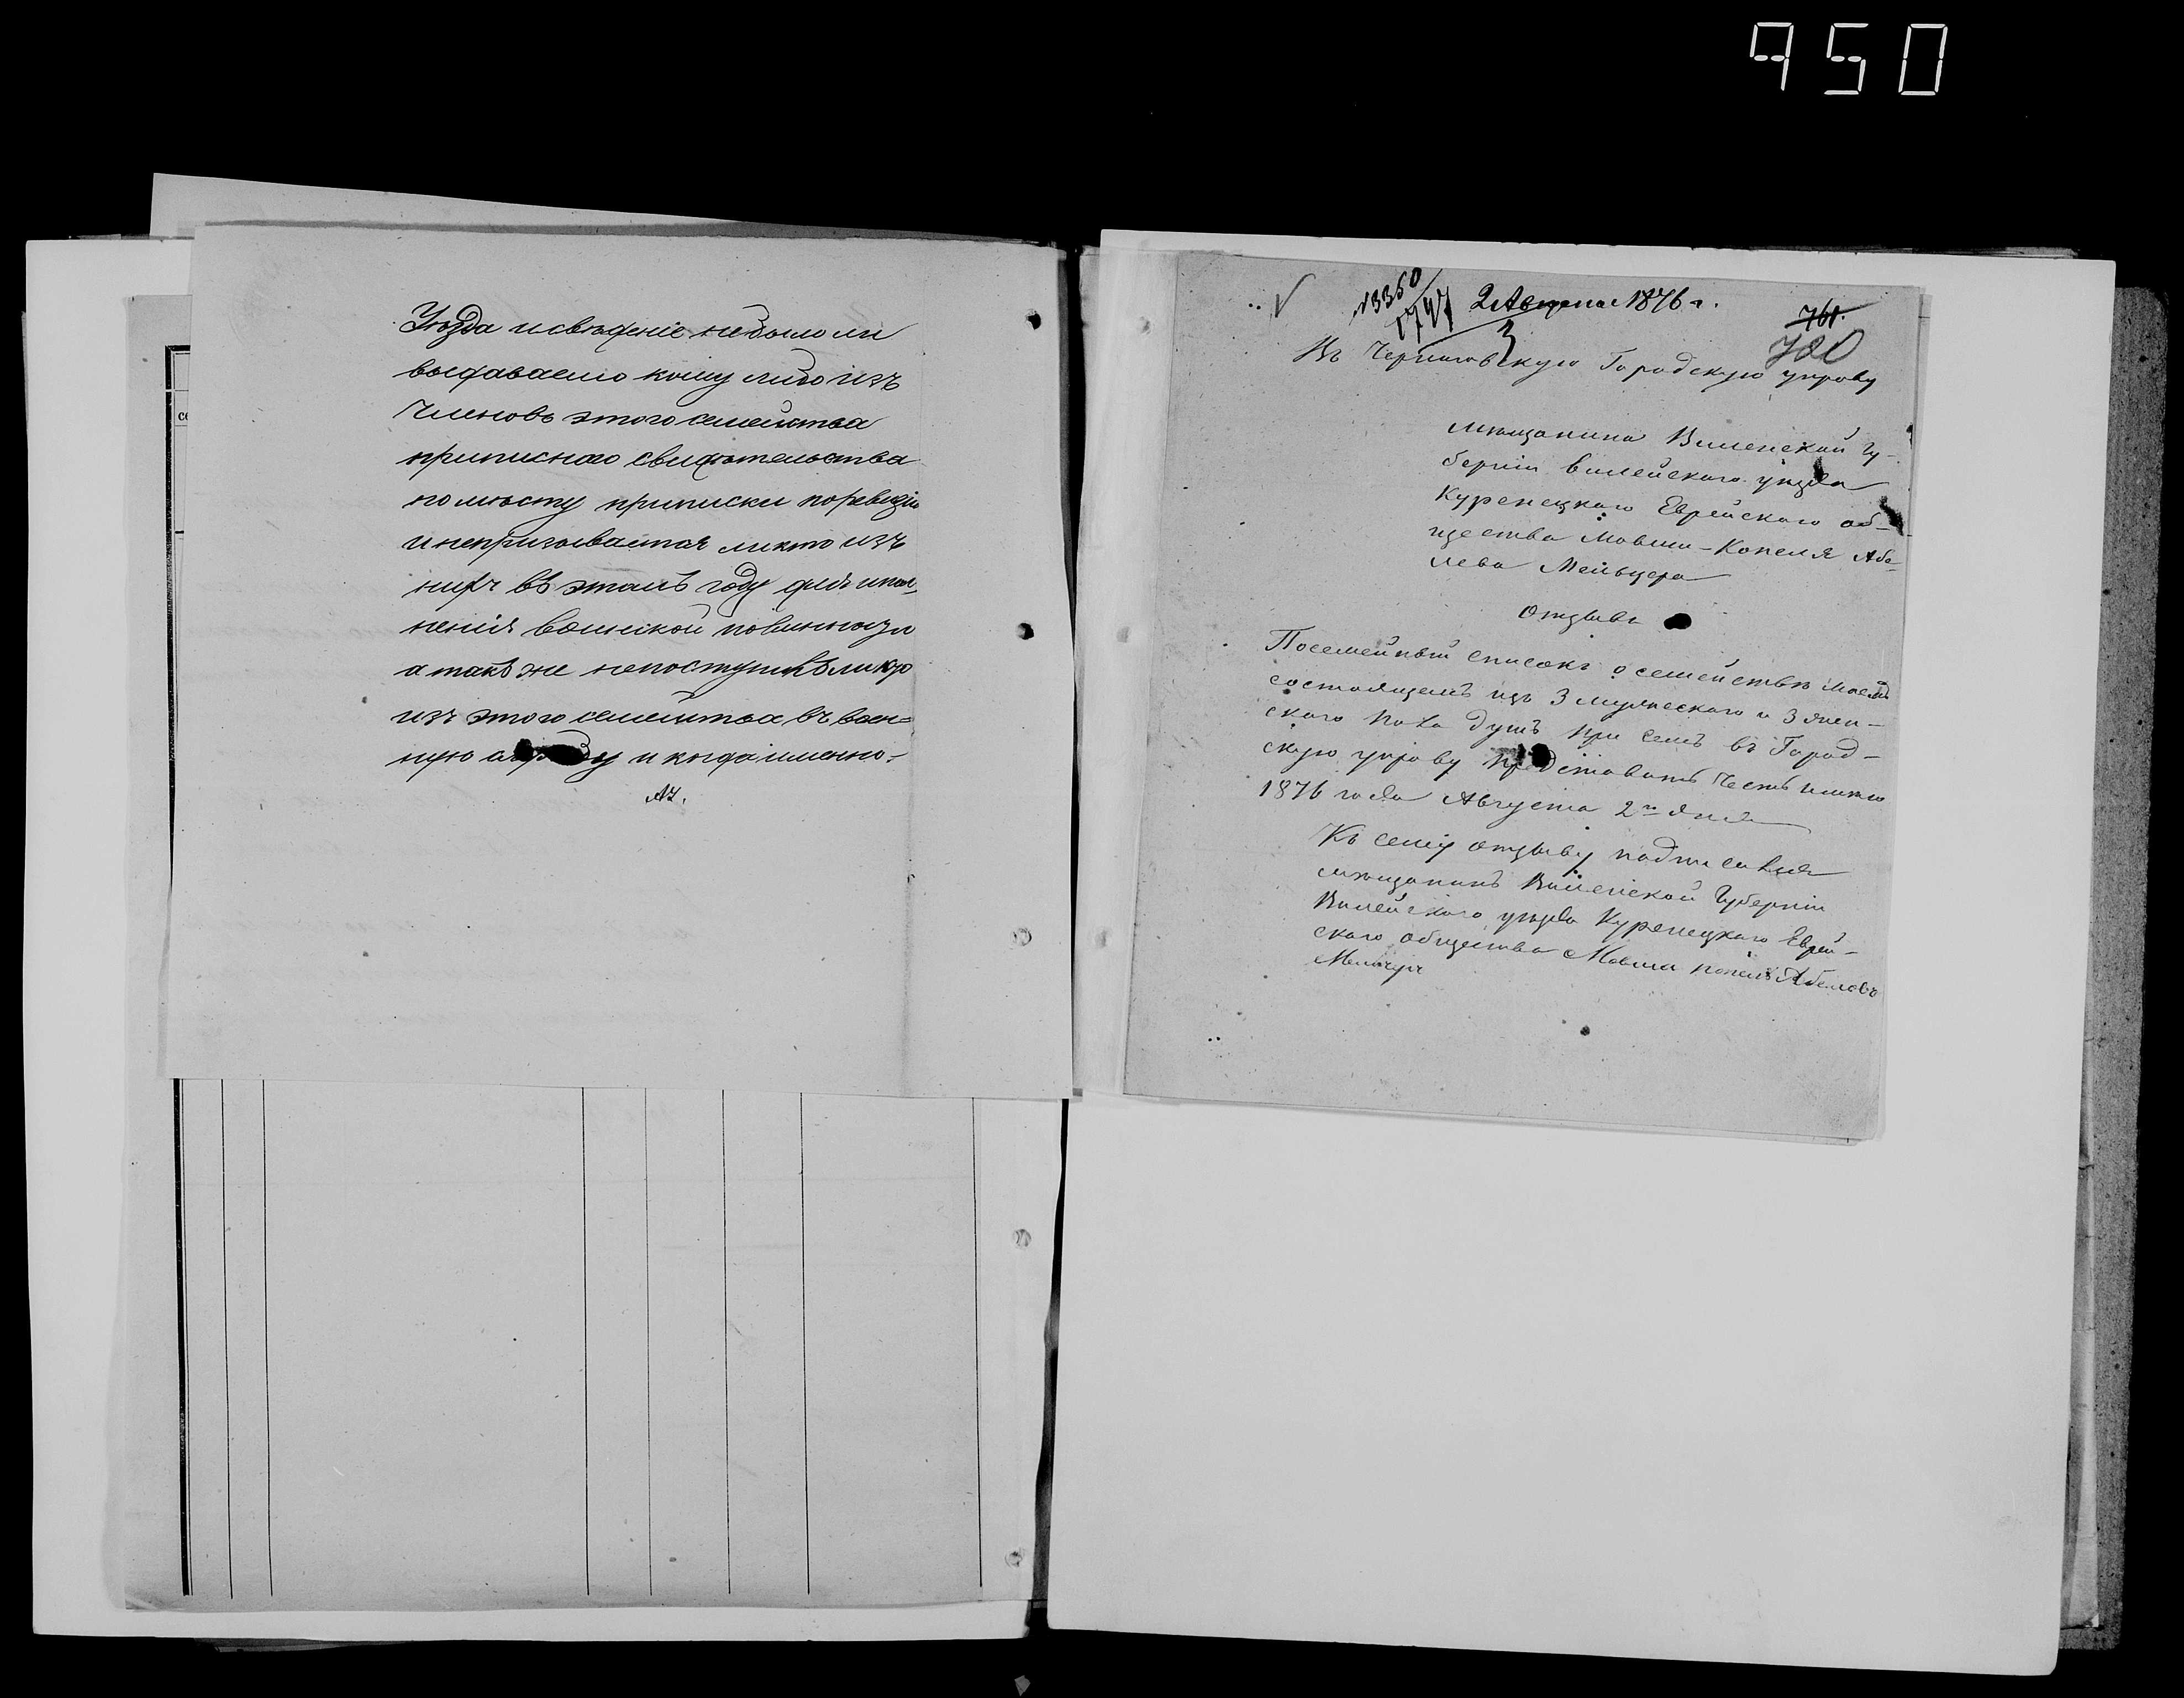 950
Уѣзда и свѣденіе небыло ли
выдаваемо кому либо изъ
Членовъ этого семейства
приписнаго свидѣтельства
по мѣсту приписки поревизіи
и непризывается ликто изъ
нихъ въ этомъ году для испол-
ненія воинской повинности
а такъ же непоступилъ ликто
изъ этого семейства въ воен=
ную службу и когда именно.-
се
№3350
2 Августа 1876 г.
761.
780
Въ Черниговскую Городскую управу
мѣщанина Виленской Гу-
берніи Вилейскаго уѣзда
Куренецкаго Еврейскаго об-
щества Мовши-Копеля Абе-
лева Мейльцера
Отзывъ
Посемейный списокъ о семействѣ моемъ
состоящемъ изъ 3 мужескаго и 3 жен-
скаго пола душъ при семъ въ Город-
скую управу представить честь имѣю
1876 года Августа 2го дня
Къ сему отзыву подписался
мѣщанинъ Виленской Губерніи
Вилейскаго уѣзда Куренецкаго Еврей-
скаго общества Мовша Копель Абелевъ